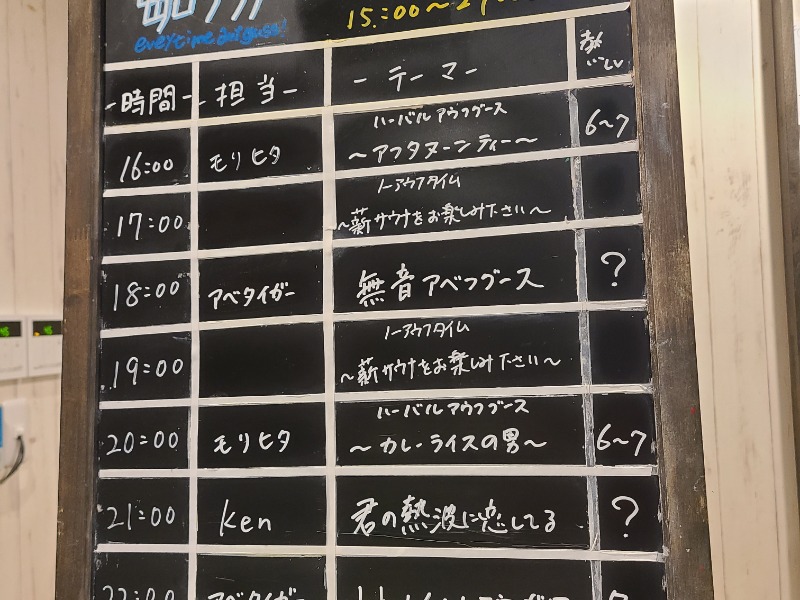 15:00～
-時間- -担当- -テーマ-
ハーバル アウフグース
16:00 モリヒタ ～アフタヌーンティー～ 6～7
ノーアウフタイム
17:00 ～薪サウナをお楽しみ下さい～
18:00 アベタイガー 無音アベフグース ?
ノーアウフタイム
19:00 ～薪サウナをお楽しみ下さい～
ハーバル アウフグース
20:00 モリヒタ ～カレーライスの男～ 6～7
21:00 Ken 君の熱波に恋してる ?
22:00 アベタイガー